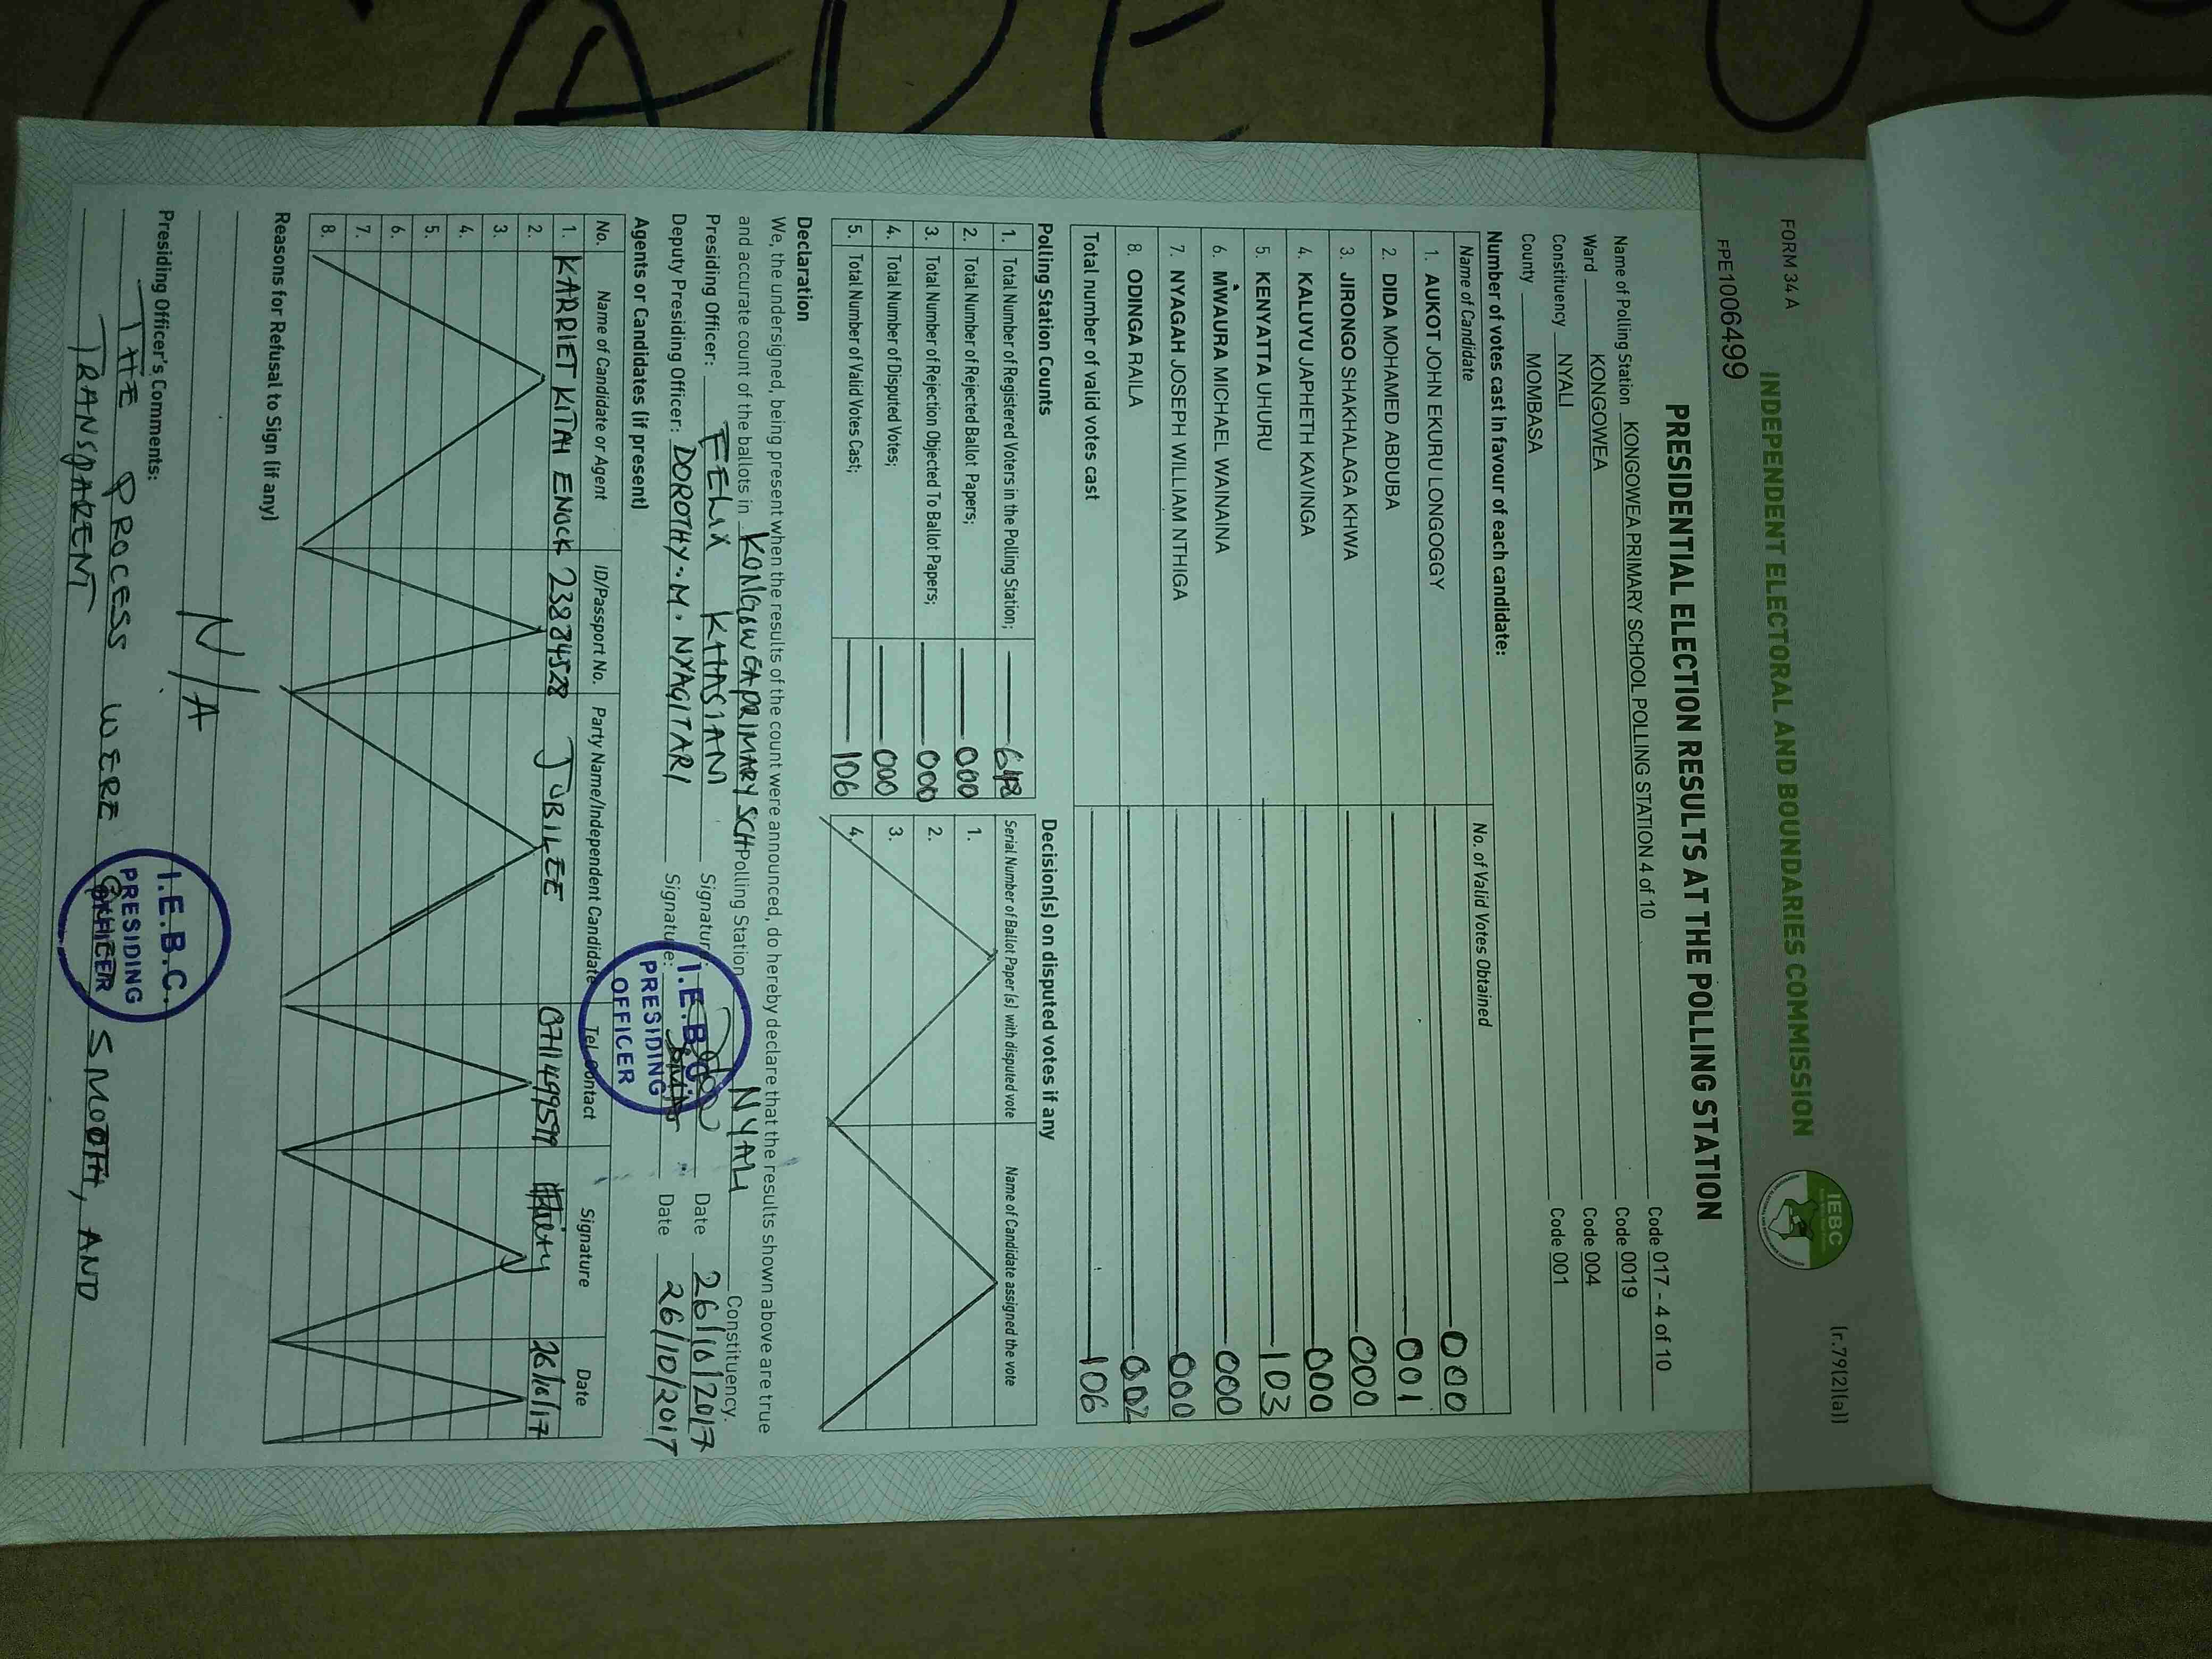 FORM 34 A
(r.79(2)(a))
INDEPENDENT ELECTORAL AND BOUNDARIES COMMISSION
IEBC
FPE1006499
PRESIDENTIAL ELECTION RESULTS AT THE POLLING STATION
Name of Polling Station KONGOWEA PRIMARY SCHOOL POLLING STATION 4 of 10 Code 017 - 4 of 10
Ward KONGOWEA Code 0019
Constituency NYALI Code 004
County MOMBASA Code 001
Number of votes cast in favour of each candidate:
Name of Candidate No. of Valid Votes Obtained
1. AUKOT JOHN EKURU LONGOGGY 000
2. DIDA MOHAMED ABDUBA 001
3. JIRONGO SHAKHALAGA KHWA 000
4. KALUYU JAPHETH KAVINGA 000
5. KENYATTA UHURU 103
6. MWAURA MICHAEL WAINAINA 000
7. NYAGAH JOSEPH WILLIAM NTHIGA 000
8. ODINGA RAILA 002
Total number of valid votes cast 106
Polling Station Counts
1. Total Number of Registered Voters in the Polling Station;
2. Total Number of Rejected Ballot Papers; 000
3. Total Number of Rejection Objected To Ballot Papers; 000
4. Total Number of Disputed Votes; 000
5. Total Number of Valid Votes Cast; 106
Decision(s) on disputed votes if any
Serial Number of Ballot Paper (s) with disputed vote Name of Candidate assigned the vote
1.
2.
3.
4.
Declaration
We, the undersigned, being present when the results of the count were announced, do hereby declare that the results shown above are true
and accurate count of the ballots in KONGOWEA PRIMARY SCH Polling Station NYALI Constituency.
Presiding Officer: FELIX KHASIANI Signature: Date 26/10/2017
Deputy Presiding Officer: DOROTHY.M. NYAGITARI Signature: Date 26/10/2017
I.E.B.C.
PRESIDING
OFFICER
Agents or Candidates (if present)
No. Name of Candidate or Agent ID/Passport No. Party Name/Independent Candidate Tel. Contact Signature Date
1. KARRIET KITAH ENOCK 23884528 JUBILEE 0711499599 26/10/17
2.
3.
4.
5.
6.
7.
8.
Reasons for Refusal to Sign (if any)
N/A
Presiding Officer's Comments:
THE PROCESS WERE SMOOTH, AND
TRANSPARENT
I.E.B.C.
PRESIDING
OFFICER